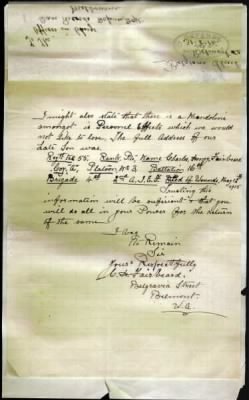 I might also state that there is a Mandoline
amongst is Personnel Effects which we would
not like to lose. The full Address of our
Late Son was.
Regt No 55. Rank Pte, Name Charles Fairbeard
Coy "A", Platoon No 3, Battalion 16th
Brigade 4th A.I.F. of Wounds, May
Trusting this
information will be sufficient & that you
will do all in your Power for the return
of the same
We Remain
Sir
Yours Respectfully
Fairbeard.
Belgravia Street
Belmont.
W.A.
To The
Officer in Charge
Base Records
Melbourne
Belgravia Street